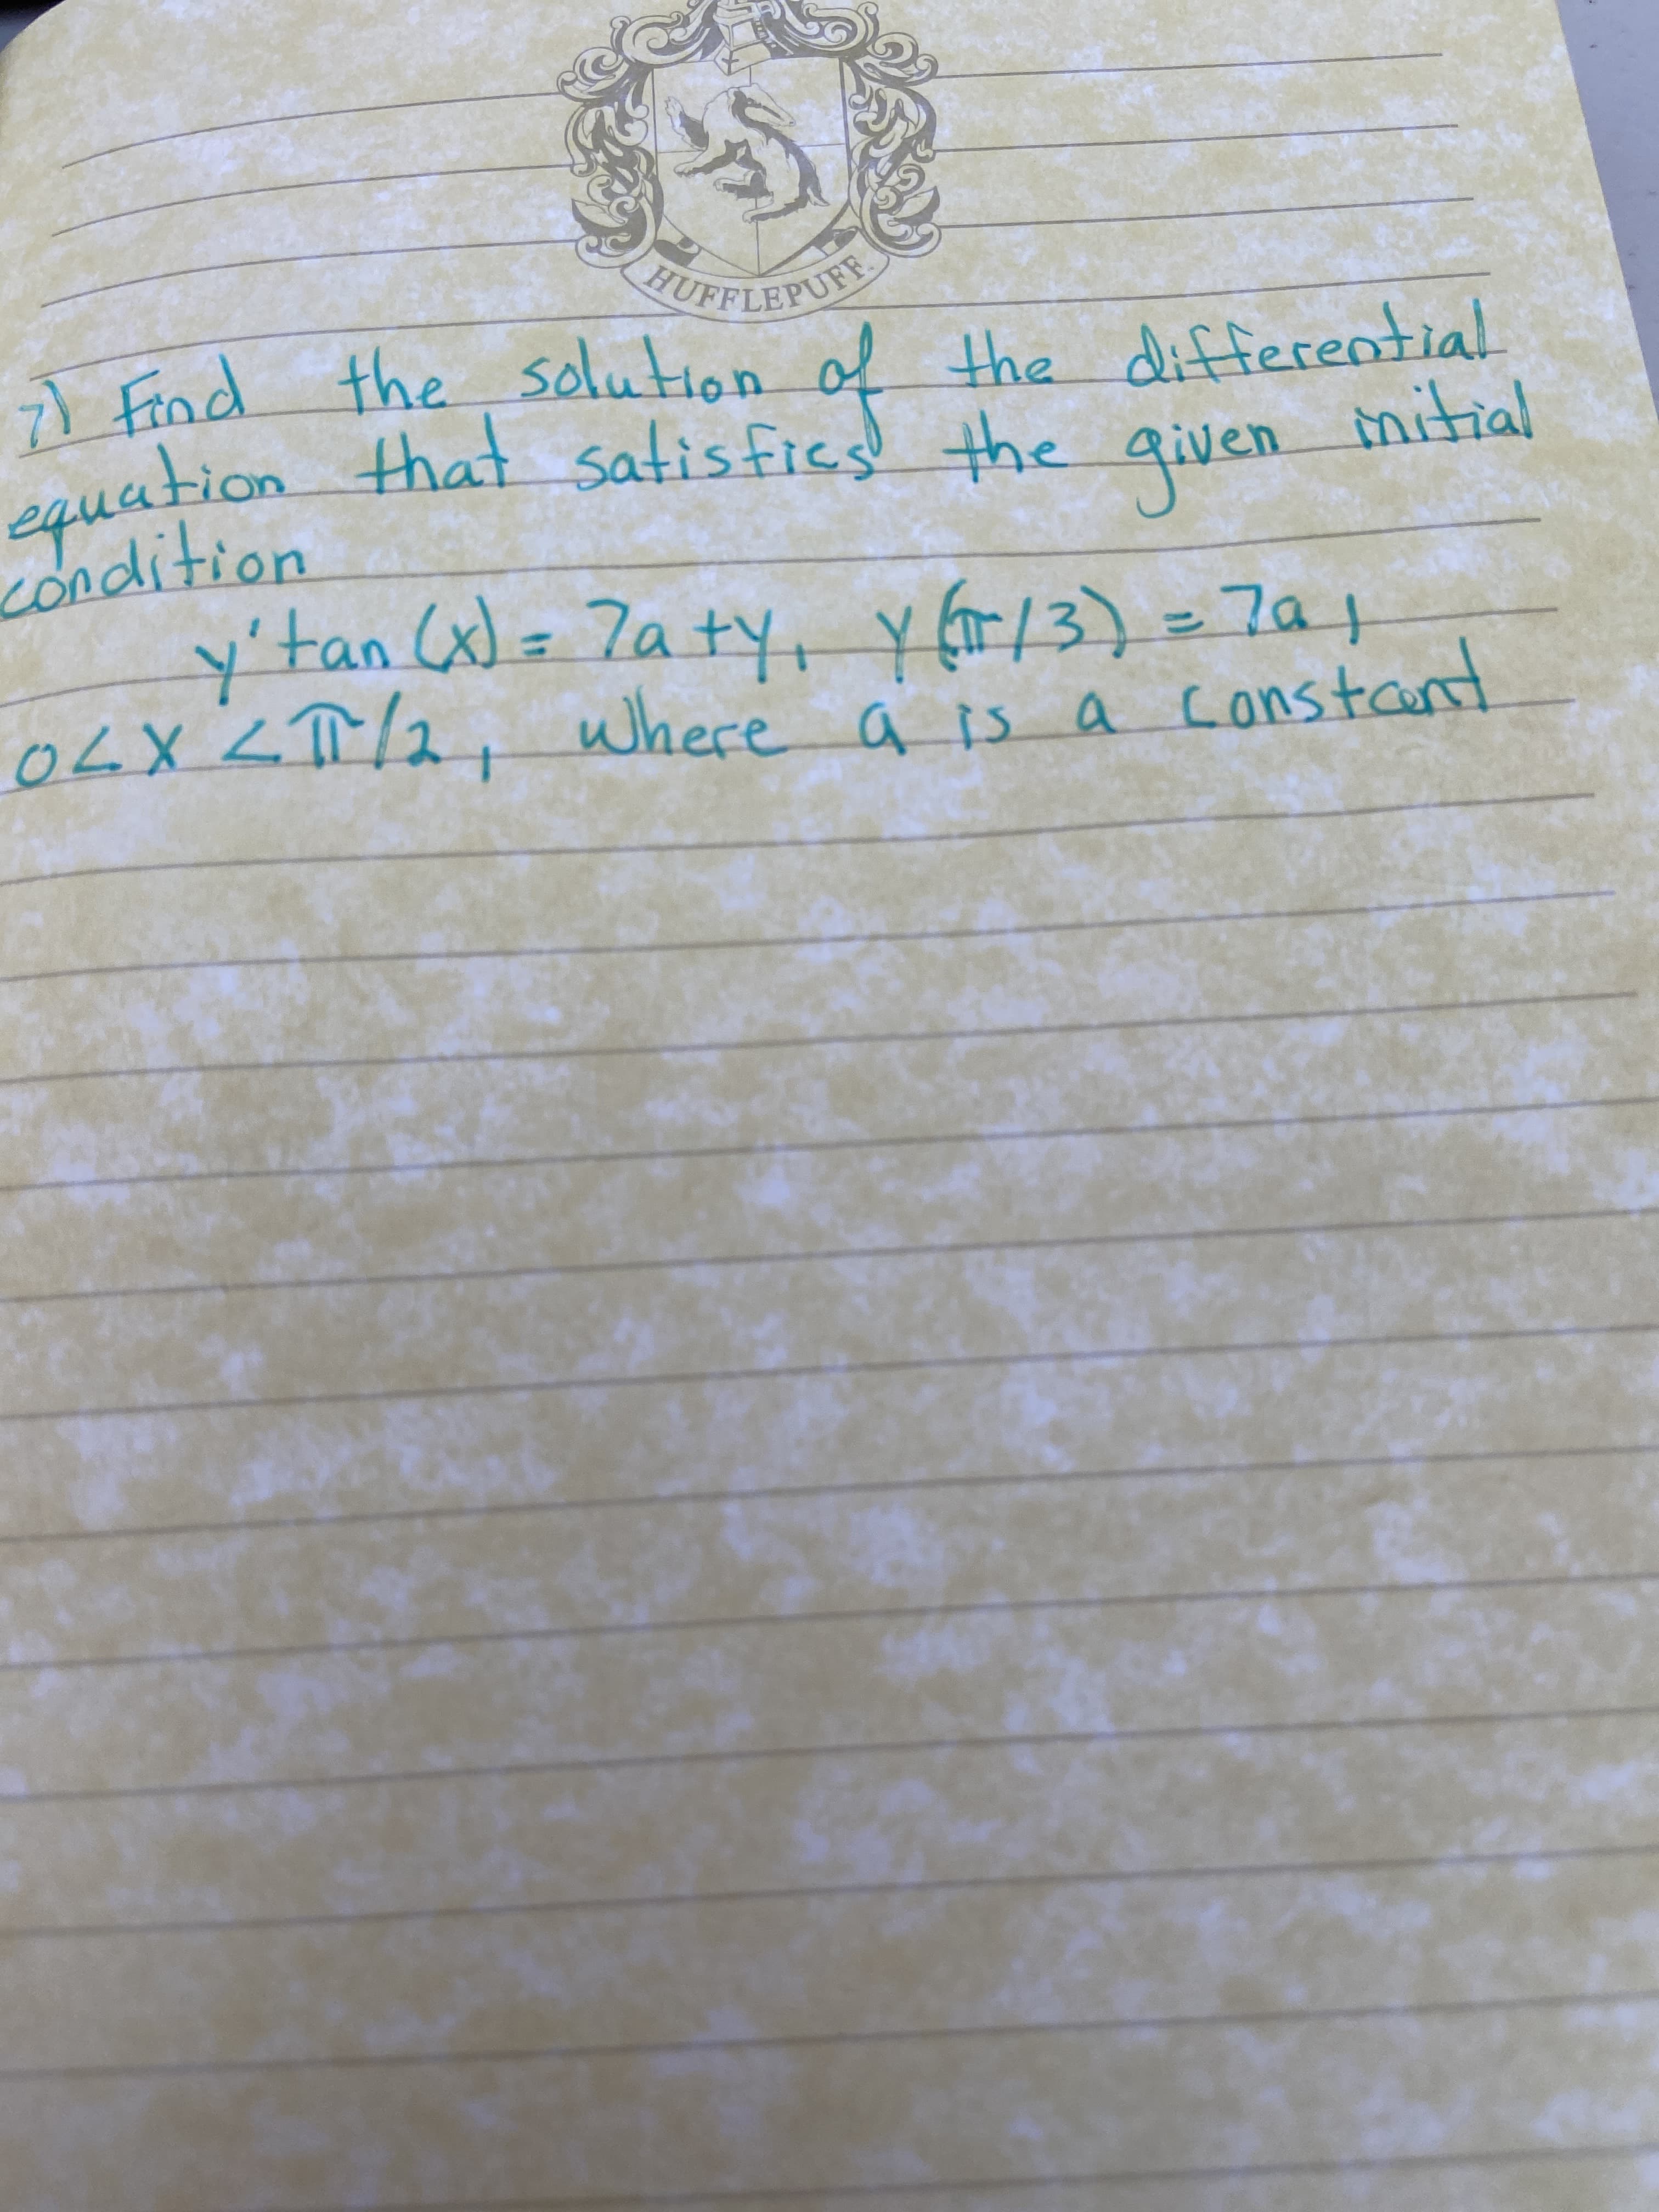 HUFFLEPUFF
7) Find the solution of the differential
equation that satisfies the given initial
condition
y' tan (x) = 7a + y, y(π/3) = 7a,
0 < x < π/2, where a is a constant